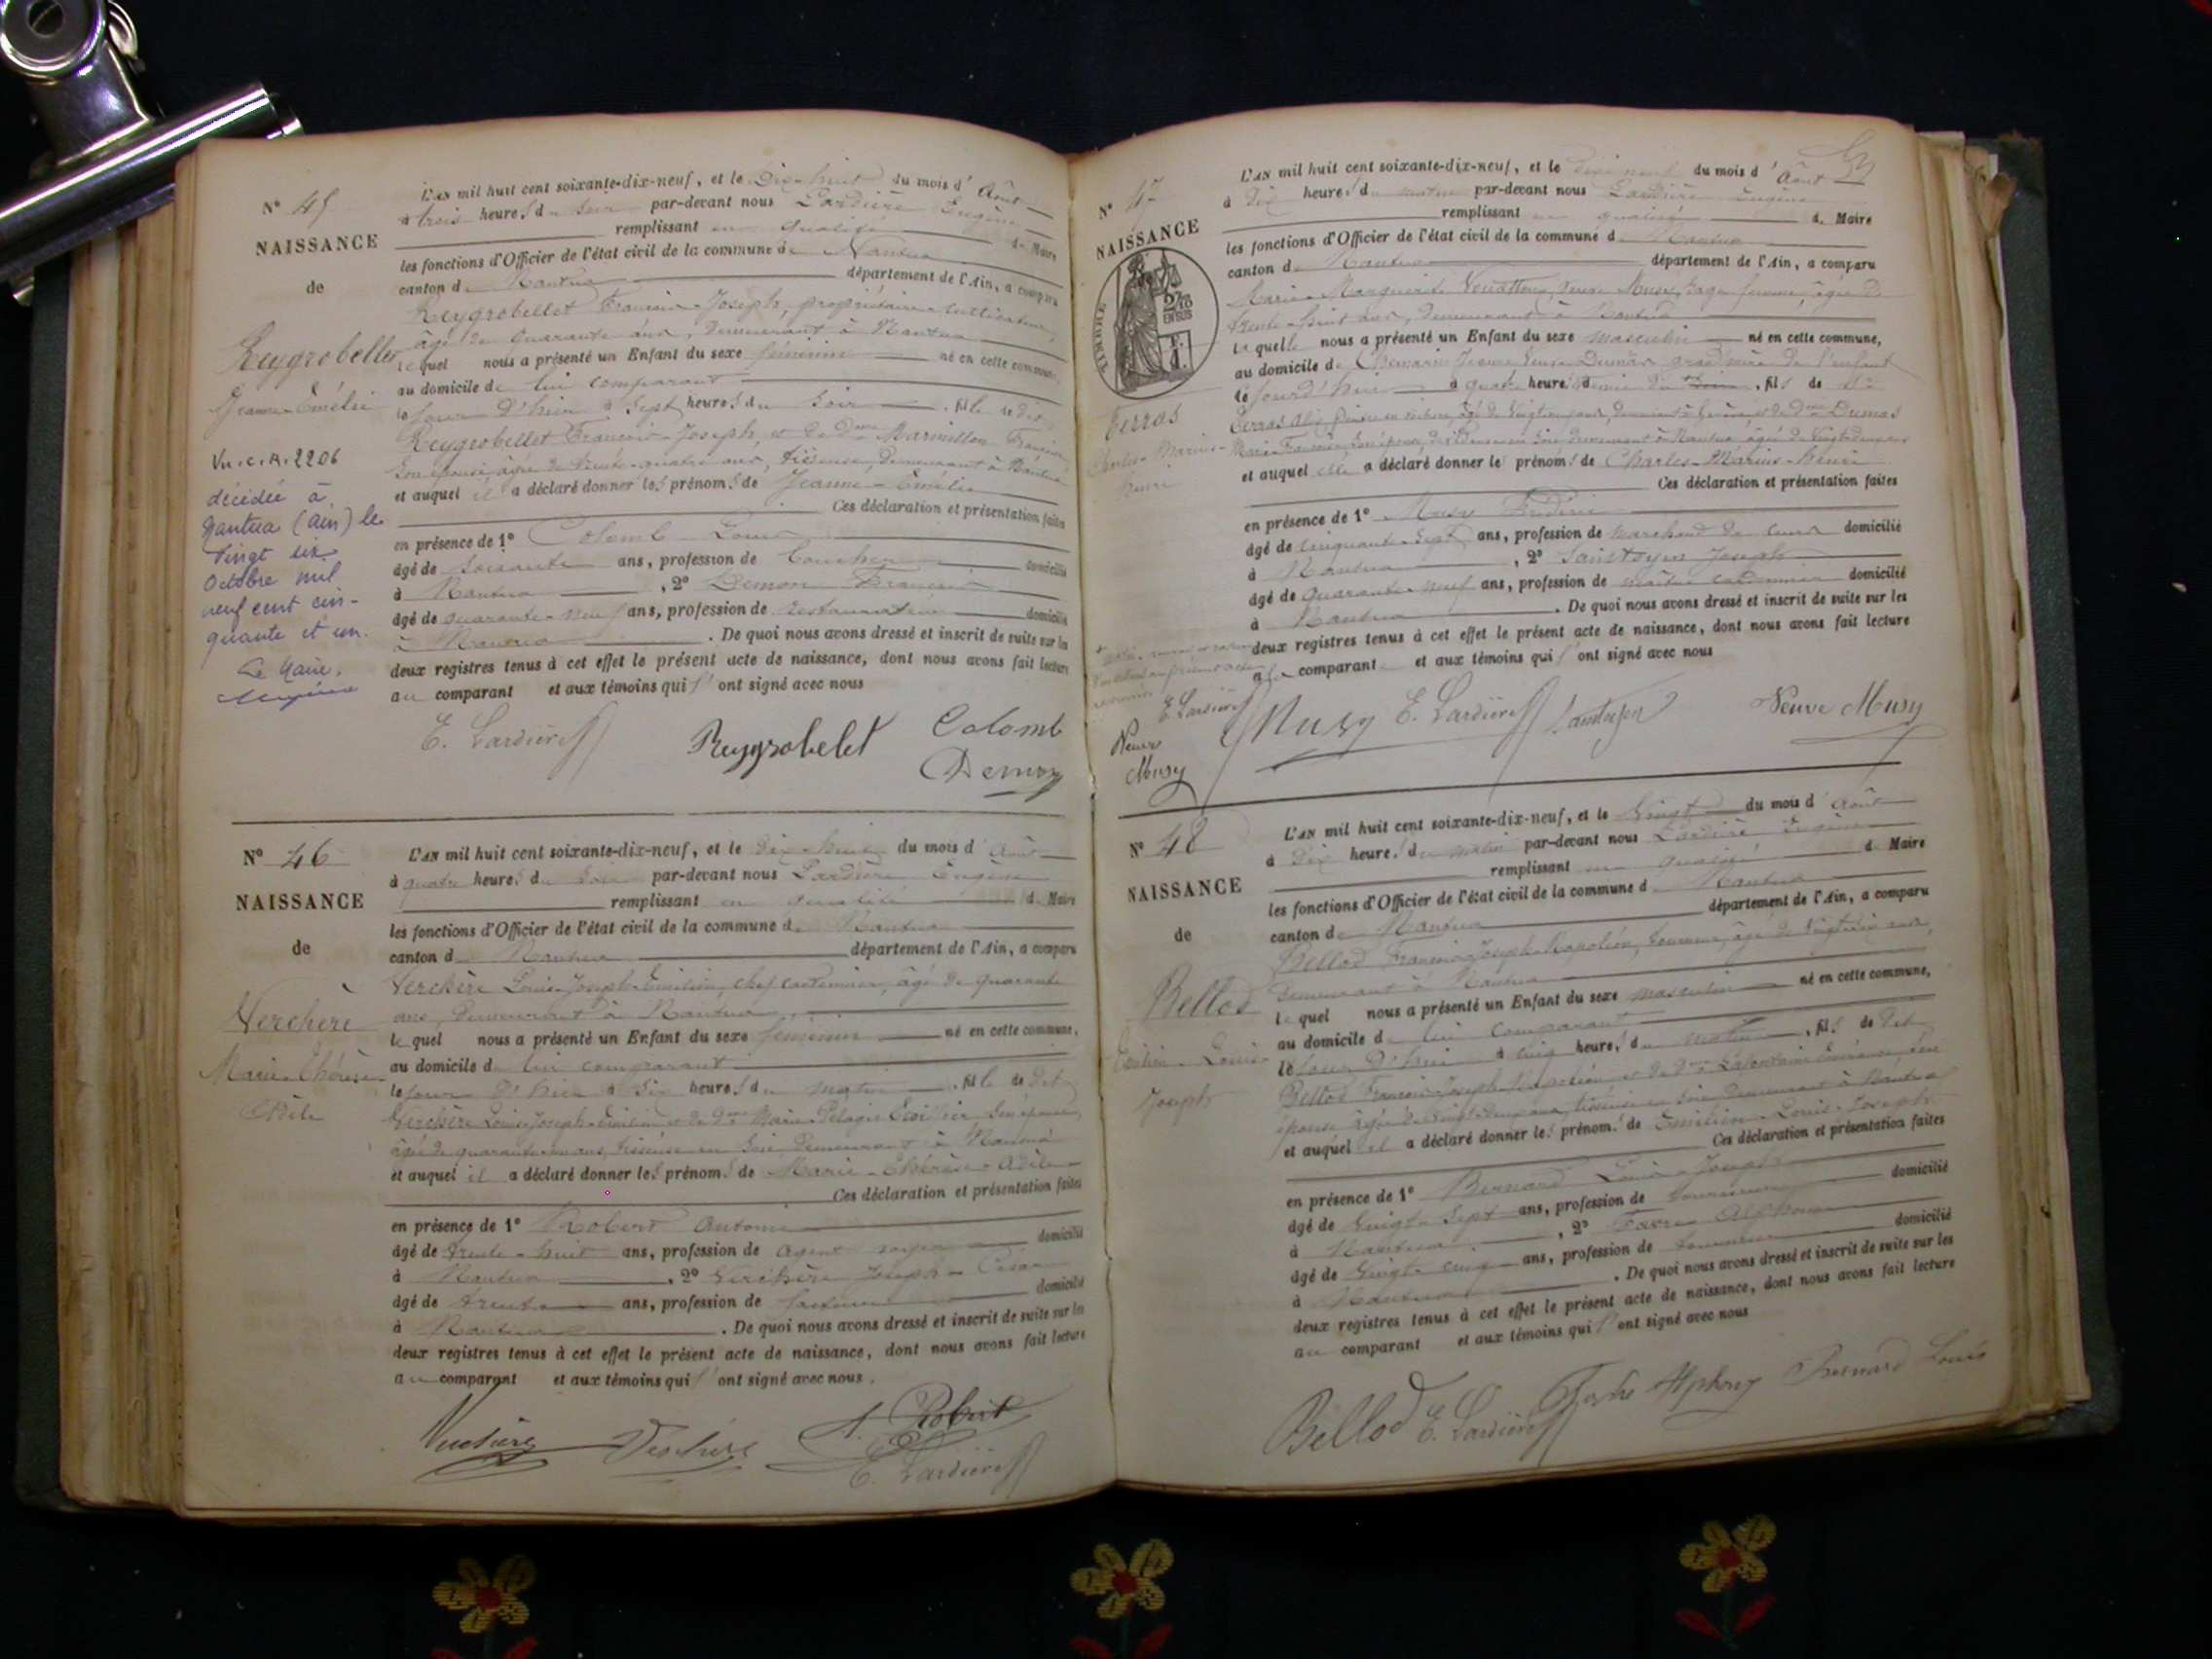 N° 45
NAISSANCE
de
Reygrobellet
Jeanne-Emélie
Vu.c.A.2206
décédée à
Nantua (Ain) le
vingt six
Octobre mil
neuf cent cin-
quante et un.
Le Maire,
L'AN mil huit cent soixante-dix-neuf, et le Dix-huit du mois d'Août
à trois heures du soir par-devant nous Lardière Eugène
remplissant en qualité de Maire
les fonctions d'Officier de l'état civil de la commune de Nantua
canton de Nantua département de l'Ain, a comparu
Reygrobellet François-Joseph, propriétaire-cultivateur,
âgé de quarante ans, demeurant à Nantua
lequel nous a présenté un Enfant du sexe féminin né en cette commune,
au domicile de lui comparant
le jour d'hier à sept heures du soir, fille de dit
Reygrobellet François-Joseph, et de Dme Marinillon
son épouse, âgée de trente-quatre ans, tisseuse, demeurant à Nantua
et auquel il a déclaré donner les prénoms de Jeanne-Emélie
Ces déclaration et présentation faites
en présence de 1° Colomb Louis
âgé de soixante ans, profession de domicilié
à Nantua, 2° Demon François
âgé de quarante-neuf ans, profession de restaurateur domicilié
à Nantua. De quoi nous avons dressé et inscrit de suite sur les
deux registres tenus à cet effet le présent acte de naissance, dont nous avons fait lecture
au comparant et aux témoins qui l'ont signé avec nous
E. Lardière Reygrobelet Colomb
Demon
N° 46
NAISSANCE
de
Verchère
Marie-Thérèse-
Adèle
L'AN mil huit cent soixante-dix-neuf, et le dix-huit du mois d'Août
à quatre heures du soir par-devant nous Lardière Eugène
remplissant en qualité de Maire
les fonctions d'Officier de l'état civil de la commune de Nantua
canton de Nantua département de l'Ain, a comparu
Verchère Louis-Joseph-Emilien, chef cantonnier, âgé de quarante
ans, demeurant à Nantua
lequel nous a présenté un Enfant du sexe féminin né en cette commune,
au domicile de lui comparant
le jour d'hier à six heures du matin, fille de dit
Verchère Louis-Joseph-Emilien et de Dme Marie-Pélagie son épouse,
âgée de quarante-un ans, tisseuse en soie demeurant à Nantua
et auquel il a déclaré donner les prénoms de Marie-Thérèse-Adèle
Ces déclaration et présentation faites
en présence de 1° Robert Antoine
âgé de trente-huit ans, profession de agent voyer domicilié
à Nantua, 2° Verchère Joseph-César
âgé de trente ans, profession de facteur domicilié
à Nantua. De quoi nous avons dressé et inscrit de suite sur les
deux registres tenus à cet effet le présent acte de naissance, dont nous avons fait lecture
au comparant et aux témoins qui l'ont signé avec nous.
Verchère Verchère A. Robert
E. Lardière
N° 47
NAISSANCE
TIMBRE
2/10
EN SUS
Ferras
Charles-Marius-
Henri
L'AN mil huit cent soixante-dix-neuf, et le dix-neuf du mois d'Août
à dix heures du matin par-devant nous Lardière Eugène
remplissant en qualité de Maire
les fonctions d'Officier de l'état civil de la commune de Nantua
canton de Nantua département de l'Ain, a comparu
Marie-Marguerite veuve Musy, sage femme, âgée de
trente-huit ans, demeurant à Nantua
laquelle nous a présenté un Enfant du sexe masculin né en cette commune,
au domicile de Jeanne Dumas grand'mère de l'enfant
le jourd'hui à quatre heures demie du, fils de
Ferras et de Dme Dumas
Marie son épouse, demeurant à Nantua, âgée de vingt-deux ans
et auquel elle a déclaré donner les prénoms de Charles-Marius-Henri
Ces déclaration et présentation faites
en présence de 1° Musy
âgé de cinquante-sept ans, profession de marchand de domicilié
à Nantua, 2° Saintoyen Joseph
âgé de quarante-neuf ans, profession de maître cordonnier domicilié
à Nantua. De quoi nous avons dressé et inscrit de suite sur les
deux registres tenus à cet effet le présent acte de naissance, dont nous avons fait lecture
à la comparante et aux témoins qui l'ont signé avec nous
E. Lardière
Veuve
Musy
Musy E. Lardière Saintoyen Veuve Musy
N° 48
NAISSANCE
de
Bellod
Emilien-Louis-
Joseph
L'AN mil huit cent soixante-dix-neuf, et le vingt du mois d'Août
à dix heures du matin par-devant nous Lardière Eugène
remplissant en qualité de Maire
les fonctions d'Officier de l'état civil de la commune de Nantua
canton de Nantua département de l'Ain, a comparu
Bellod François-Joseph-Napoléon, tourneur, âgé de vingt-six ans,
demeurant à Nantua
lequel nous a présenté un Enfant du sexe masculin né en cette commune,
au domicile de lui comparant
le jour d'hier à cinq heures du matin, fils de dit
Bellod François-Joseph-Napoléon, et de Dme Lafontaine son
épouse âgée de vingt-deux ans, tisseuse en soie demeurant à Nantua
et auquel il a déclaré donner les prénoms de Emilien-Louis-Joseph
Ces déclaration et présentation faites
en présence de 1° Bernard Louis-Joseph
âgé de vingt-sept ans, profession de tourneur domicilié
à Nantua, 2° Favre Alphonse
âgé de vingt-cinq ans, profession de tourneur domicilié
à Nantua. De quoi nous avons dressé et inscrit de suite sur les
deux registres tenus à cet effet le présent acte de naissance, dont nous avons fait lecture
au comparant et aux témoins qui l'ont signé avec nous
Bellod E. Lardière Alphonse Bernard Louis